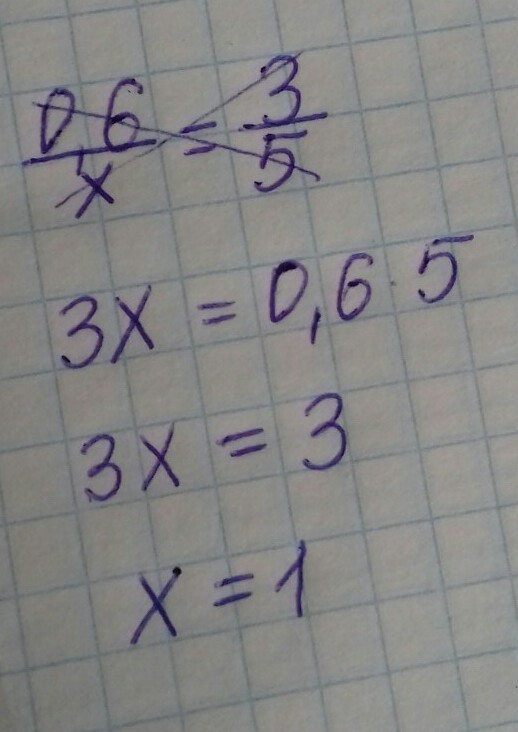 0,6/x = 3/5
3x = 0,6 · 5
3x = 3
x = 1